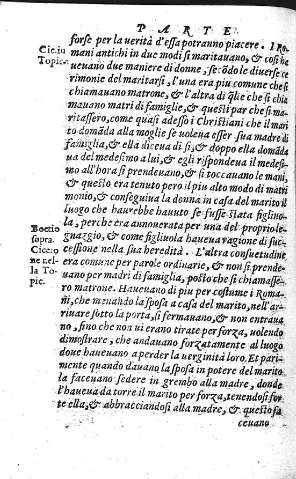 PARTE
forse per la verità d'essa potranno piacere. I Ro
mani antichi in due modi si maritauano, & cosi ha
ueuano due maniere di donne, secōdo le diuerse ce
rimonie del maritarsi, l'una era piu comune che si
chiamauano matrone, & l'altra di q̄lle che si chia
mauano matri di famiglie, & questi par che si ma-
ritassero, come quasi adesso i Christiani che il mari
to domāda alla moglie se voleua esser sua madre di
famiglia, & ella diceua di si, & doppo ella domāda
ua del medesimo a lui, & egli rispondeua il medesi-
mo all'hora si prendeuano, & si toccauano le mani,
& questo era tenuto pero il piu alto modo di matri
monio, & conseguiua la donna in casa del marito il
luogo che haurebbe hauuto se fusse stata figliuo-
la, perche era annouerata per una del proprio le-
gnaggio, & come figliuola haueua ragione di suc-
cessione nella sua heredità. L'altra consuetudine
era comune per parole ordinarie, & non si prende-
uano per madri di famiglia, posto che si chiamasse-
ro matrone. Haueuano di piu per costume i Roma-
ni, che menando la sposa a casa del marito, nell'ar-
riuare sotto la porta, si fermauano, & non entraua
no, fino che non ui erano tirate per forza, uolendo
dimostrare, che andauano forzatamente al luogo
doue haueuano a perder la uerginità loro. Et pari-
mente quando dauano la sposa in potere del marito
la faceuano sedere in grembo alla madre, donde
l'haueua da torre il marito per forza, tenendosi for
te ella, & abbracciandosi alla madre, & questo fa
ceuano
Cic. in
Topic.
Boetio
sopra
Cicero
ne nel-
la To-
pic.